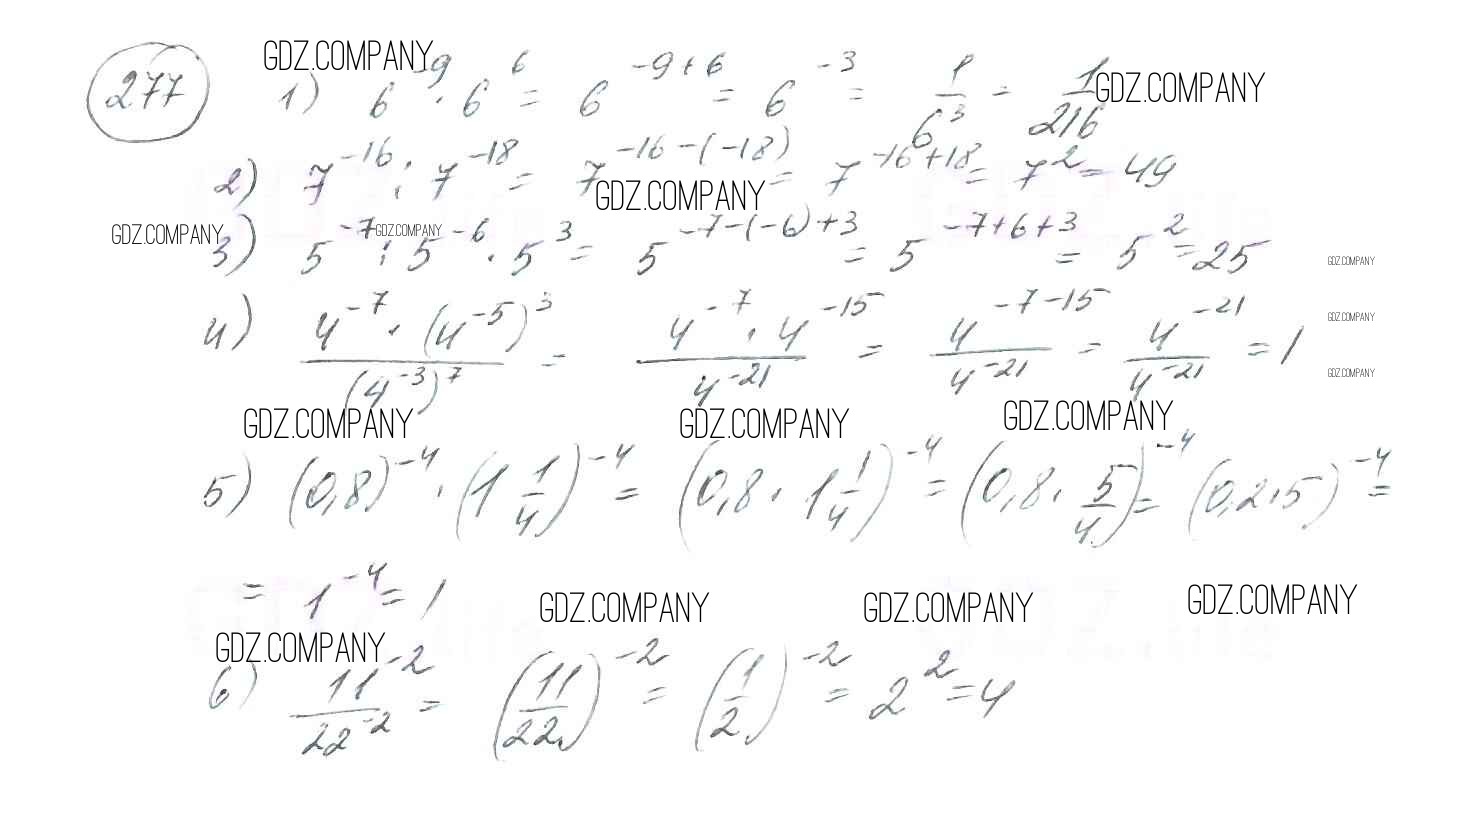 277 1) 6^-9 · 6^6 = 6^(-9+6) = 6^-3 = 1/6^3 = 1/216
GDZ.COMPANY GDZ.COMPANY
2) 7^-16 : 7^-18 = 7^(-16-(-18)) = 7^(-16+18) = 7^2 = 49
GDZ.COMPANY
GDZ.COMPANY GDZ.COMPANY
3) 5^-7 : 5^-6 · 5^3 = 5^(-7-(-6)+3) = 5^(-7+6+3) = 5^2 = 25
GDZ.COMPANY
GDZ.COMPANY
4) (4^-7 · (4^-5)^3)/(4^-3)^7 = (4^-7 · 4^-15)/4^-21 = 4^(-7-15)/4^-21 = 4^-21/4^-21 = 1
GDZ.COMPANY
GDZ.COMPANY GDZ.COMPANY GDZ.COMPANY
5) (0,8)^-4 · (1 1/4)^-4 = (0,8 · 1 1/4)^-4 = (0,8 · 5/4)^-4 = (0,2·5)^-4 =
= 1^-4 = 1
GDZ.COMPANY GDZ.COMPANY GDZ.COMPANY
GDZ.COMPANY
6) 11^-2/22^-2 = (11/22)^-2 = (1/2)^-2 = 2^2 = 4